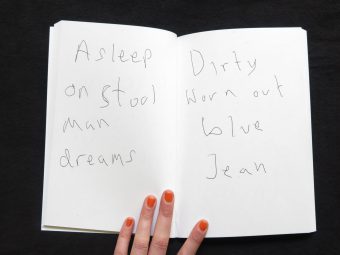 Asleep
on stool
man
dreams
Dirty
worn out
blue
Jean